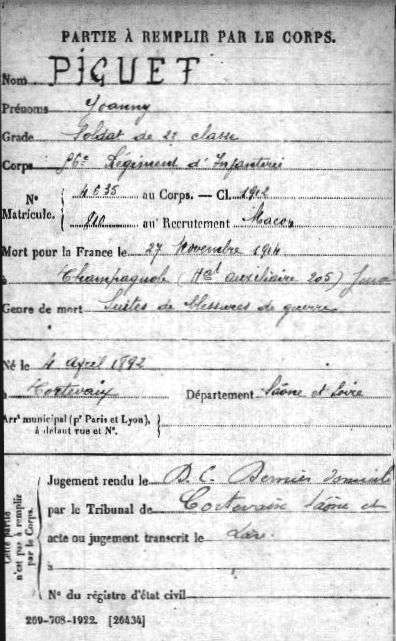 PARTIE À REMPLIR PAR LE CORPS.
Nom PIGUET
Prénoms Joanny
Grade Soldat de 2e classe
Corps 56e Régiment d'Infanterie
N° Matricule. { 4635 au Corps. — Cl. 1912
910 au Recrutement Macon
Mort pour la France le 27 Novembre 1914
à Champagnole (Hal auxiliaire 205) Jura
Genre de mort Suites de blessures de guerre
Né le 4 Avril 1892
à Cortevaix Département Saône et Loire
Arrt municipal (pr Paris et Lyon), à défaut rue et N°. {
Cette partie n'est pas à remplir par le Corps.
Jugement rendu le D. C. Dernier domicile
par le Tribunal de Cortevaix Saône et
acte ou jugement transcrit le Loire
à
N° du registre d'état civil
269-708-1922. [26434]